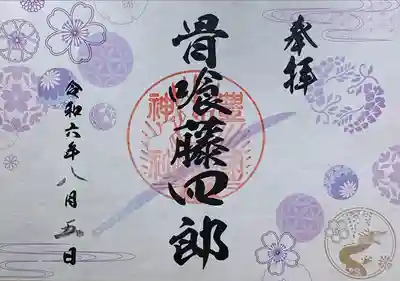 奉拝
骨喰藤四郎
豊国神社
令和六年八月五日